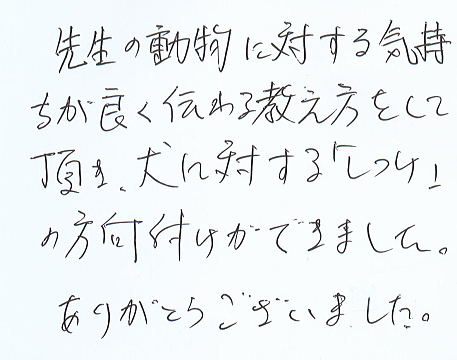 先生の動物に対する気持
ちが良く伝わる教え方をして
頂き、犬に対する「しつけ」
の方向付けができました。
ありがとうございました。